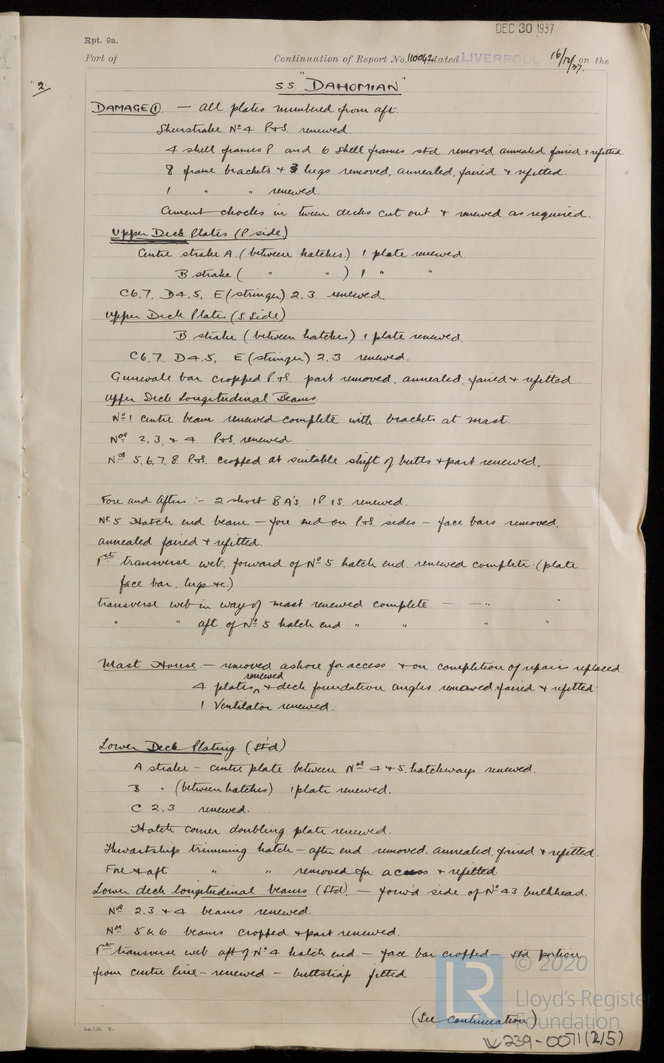 DEC 30 1937
Rpt. 9a.
Port of Continuation of Report No. 110062 dated LIVERPOOL 16/12/37. on the
2.
S.S. "DAHOMIAN"
DAMAGE ① — All plates numbered from aft.
Sheerstrake No 4 P&S renewed.
4 shell frames P and 6 shell frames stb'd removed annealed faired & refitted
8 frame brackets & 3 lugs removed, annealed, faired & refitted.
1 " " renewed.
Cement chocks in tween decks cut out & renewed as required.
Upper Deck Plates (P side)
Centre strake A (between hatches) 1 plate renewed
B strake ( " " ) 1 " "
C 6.7. D 4.5. E (stringer) 2.3 renewed.
Upper Deck Plates (S Side)
B strake (between hatches) 1 plate renewed.
C 6.7. D 4.5, E (stringer) 2.3 renewed.
Gunwale bar cropped P&S part removed, annealed, faired & refitted.
Upper Deck Longitudinal Beams
No 1 centre beam renewed complete with brackets at mast.
Nos 2, 3, & 4 P&S renewed
Nos 5, 6, 7, 8 P&S. cropped at suitable shift of butts & part renewed.
Fore and Afters :- 2 short BA's 1P 1S. renewed.
No 5 Hatch end beam — fore end on P&S sides — face bars removed,
annealed faired & refitted.
1st transverse web, forward of No 5 hatch end, renewed complete (plate
face bar, lugs &c.)
transverse web in way of mast renewed complete — —"— "
" " aft of No 5 hatch end " " " "
Mast House — removed ashore for access & on completion of repairs replaced
4 plates renewed & deck foundation angles removed, faired & refitted
1 Ventilator renewed.
Lower Deck Plating (Stb'd)
A strake — centre plate between Nos 4 & 5 hatchways renewed.
B " (between hatches) 1 plate renewed.
C 2.3 renewed.
Hatch corner doubling plate renewed.
Thwartship trimming hatch — after end removed, annealed, faired & refitted.
Fore & aft " " removed for access & refitted
Lower deck longitudinal beams (Stb'd). — forw'd side of No 43 bulkhead.
Nos 2.3 & 4 beams renewed.
Nos 5 & 6 beams cropped & part renewed.
1st transverse web aft of No 4 hatch end. — face bar cropped — stb'd portion
from centre line — renewed — buttstrap fitted
(See continuation)
© 2020
LR
Lloyd's Register
Foundation
W239-0071(2/5)